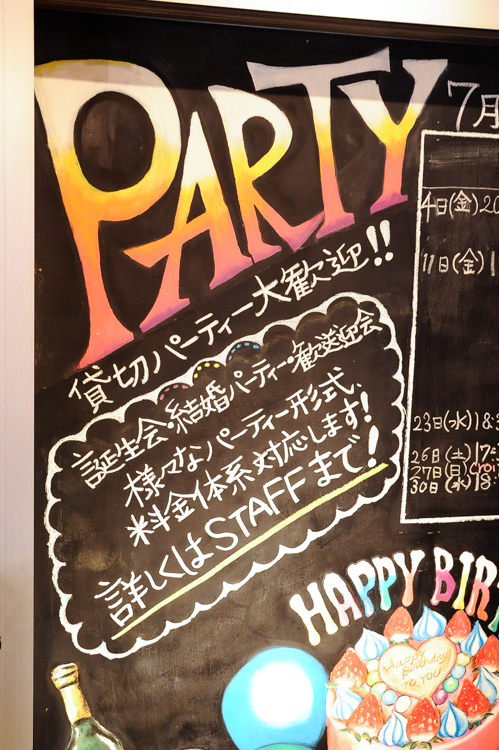 PARTY
貸切パーティー大歓迎!!
誕生会・結婚パーティー・歓送迎会
様々なパーティー形式、
料金体系対応します!
詳しくはSTAFFまで!
7月
4日(金)20
11日(金)1
23日(水)18:3
26日(土)17:
27日(日)Cro
30日(水)18:
HAPPY BIR
Happy
Birthday
TO YOU